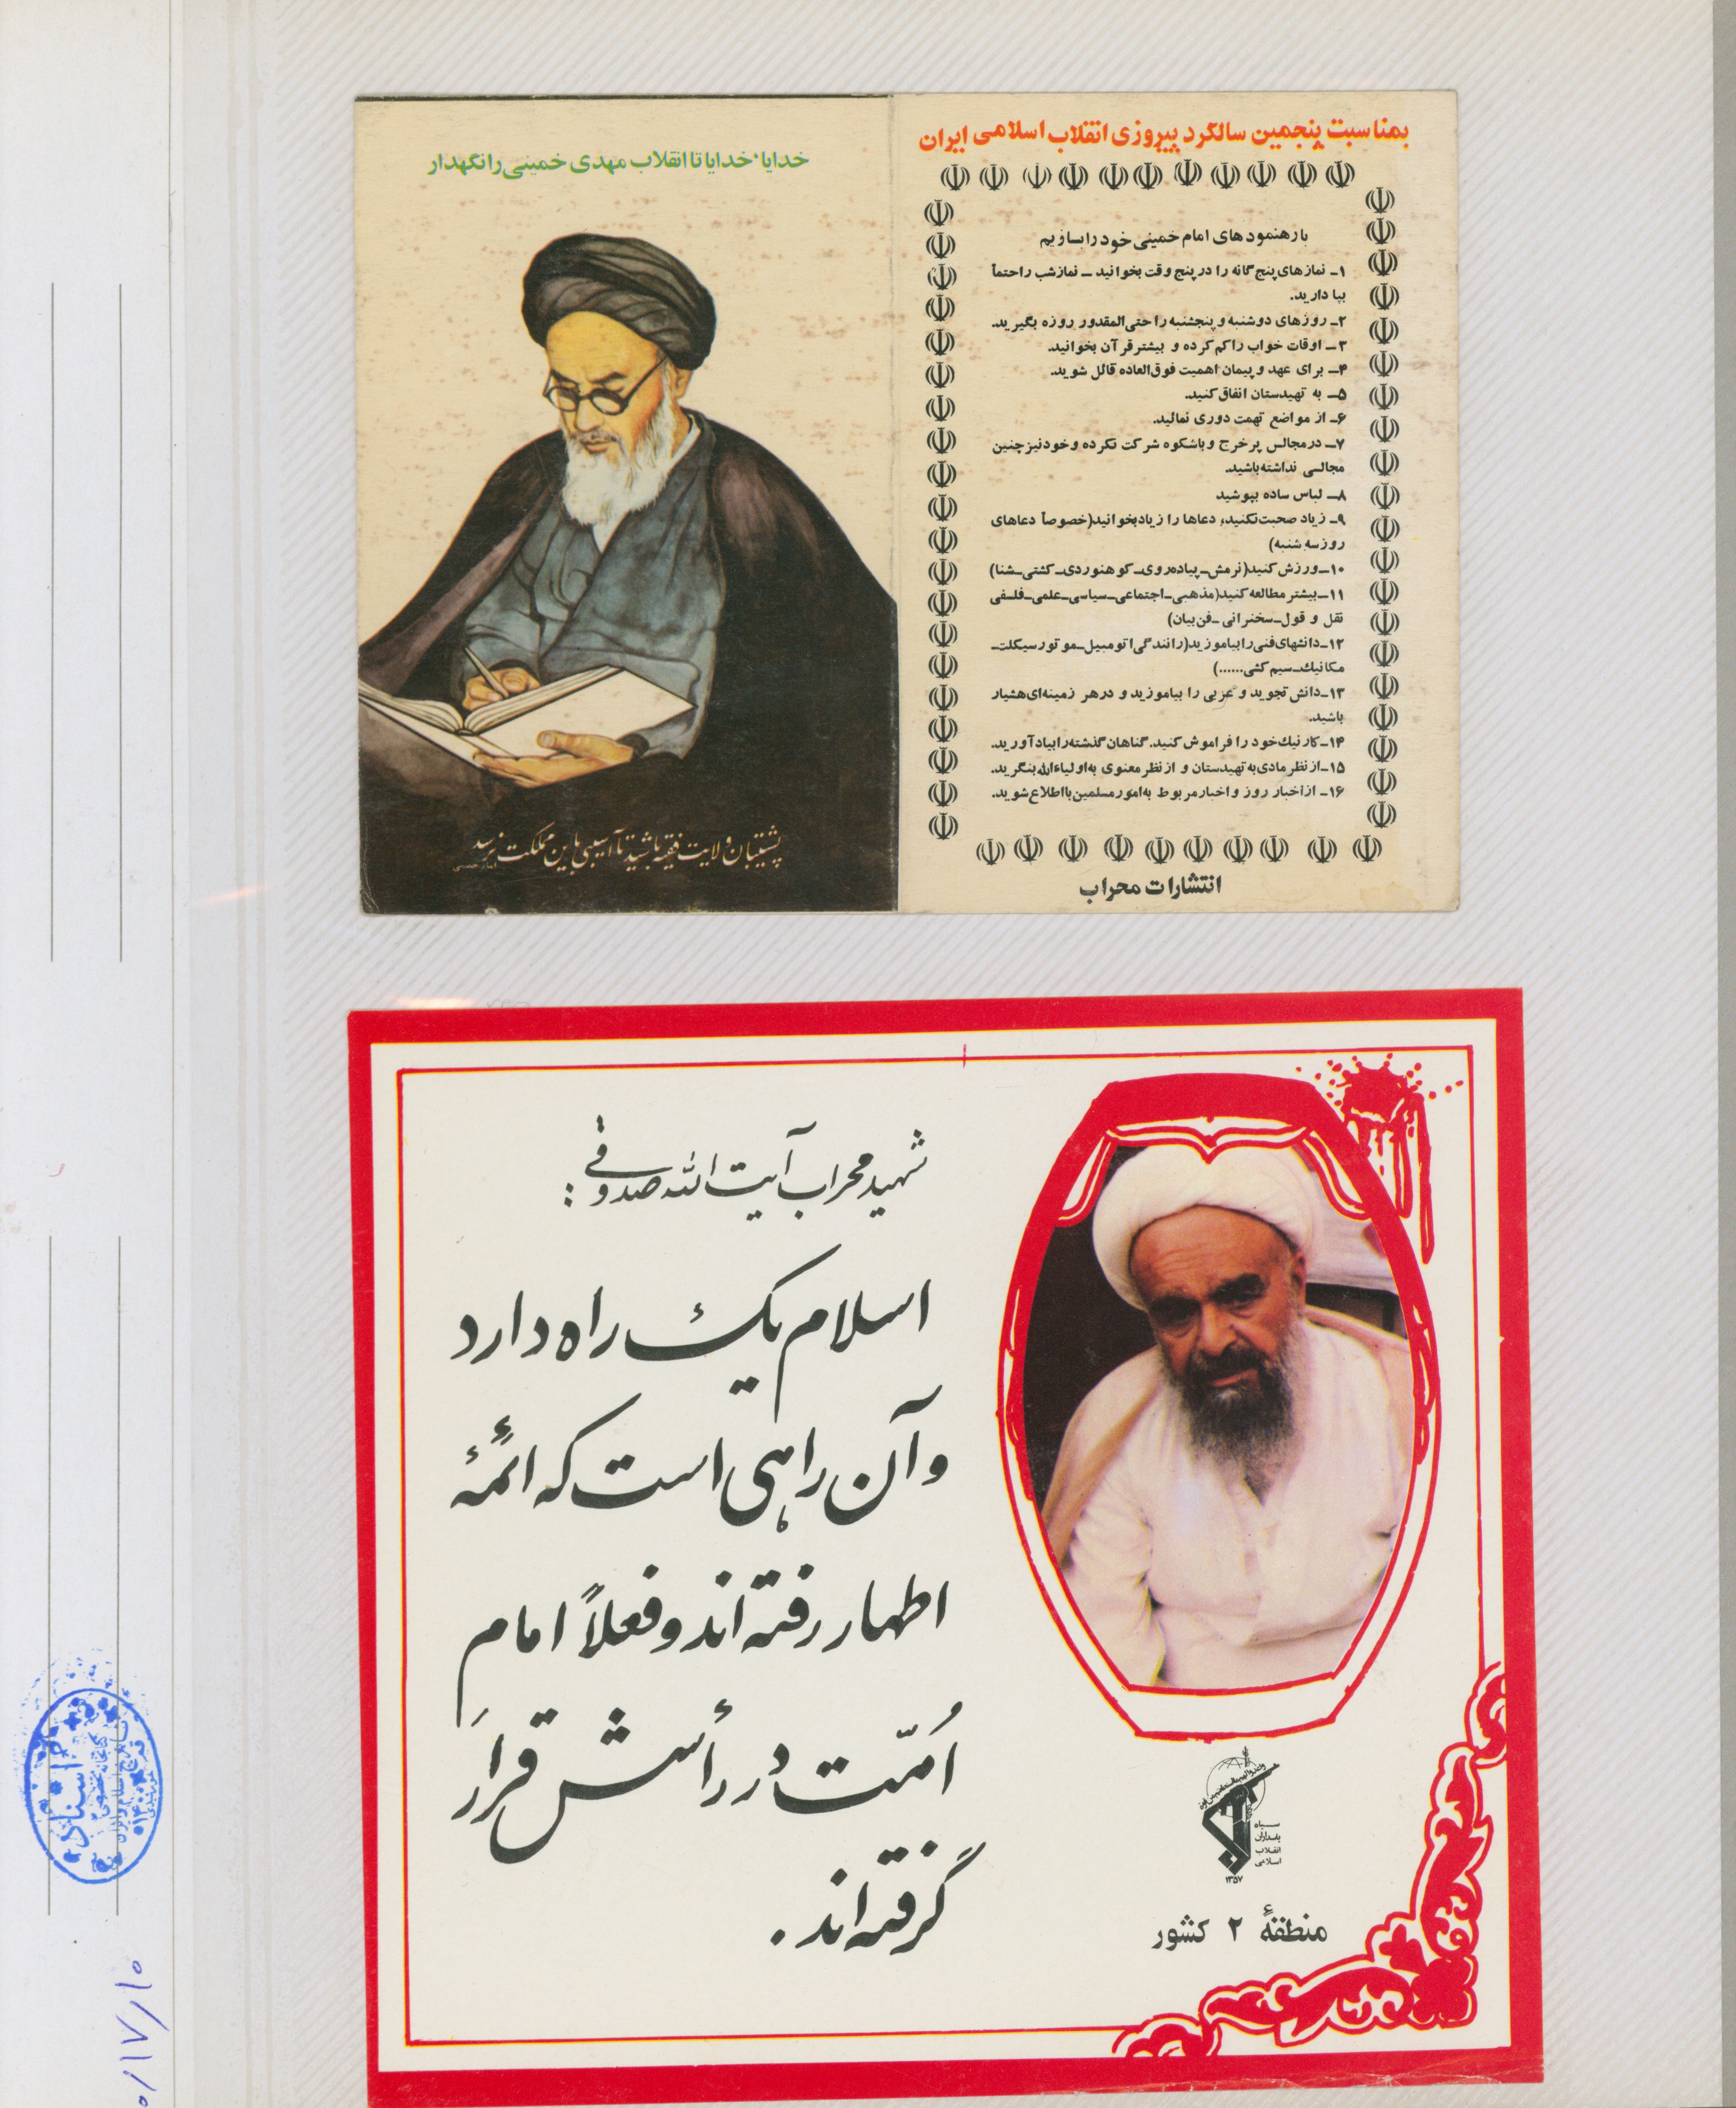 بمناسبت پنجمین سالگرد پیروزی انقلاب اسلامی ایران
بارهنمودهای امام خمینی خود را بسازیم
۱ـ نمازهای پنج گانه را در پنج وقت بخوانید ـ نمازشب را حتماً
بپا دارید.
۲ـ روزهای دوشنبه و پنجشنبه را حتی‌المقدور روزه بگیرید.
۳ـ اوقات خواب را کم کرده و بیشتر قرآن بخوانید.
۴ـ برای عهد و پیمان اهمیت فوق‌العاده قائل شوید.
۵ـ به تهیدستان انفاق کنید.
۶ـ از مواضع تهمت دوری نمائید.
۷ـ در مجالس پر خرج و باشکوه شرکت نکرده و خود نیز چنین
مجالسی نداشته باشید.
۸ـ لباس ساده بپوشید
۹ـ زیاد صحبت نکنید، دعاها را زیاد بخوانید(خصوصاً دعاهای
روز سه شنبه)
۱۰ـ ورزش کنید(نرمش ـ پیاده‌روی ـ کوهنوردی ـ کشتی ـ شنا)
۱۱ـ بیشتر مطالعه کنید(مذهبی ـ اجتماعی ـ سیاسی ـ علمی ـ فلسفی
نقل و قول ـ سخنرانی ـ فن بیان)
۱۲ـ دانشهای فنی را بیاموزید(رانندگی اتومبیل ـ موتورسیکلت ـ
مکانیک ـ سیم کشی......)
۱۳ـ دانش تجوید و عربی را بیاموزید و در هر زمینه‌ای هشیار
باشید.
۱۴ـ کار نیک خود را فراموش کنید. گناهان گذشته را بیاد آورید.
۱۵ـ از نظر مادی به تهیدستان و از نظر معنوی به اولیاءالله بنگرید.
۱۶ـ از اخبار روز و اخبار مربوط به امور مسلمین با اطلاع شوید.
انتشارات محراب
خدایا، خدایا تا انقلاب مهدی خمینی را نگهدار
پشتیبان ولایت فقیه باشید تا آسیبی باین مملکت نرسد
امام خمینی
شهید محراب آیت الله صدوقی :
اسلام یک راه دارد
و آن راهی است که ائمّهٔ
اطهار رفته اند و فعلاً امام
اُمّت در رأسش قرار
گرفته اند .
سپاه
پاسداران
انقلاب
اسلامی
۱۳۵۷
منطقهٔ ۲ کشور